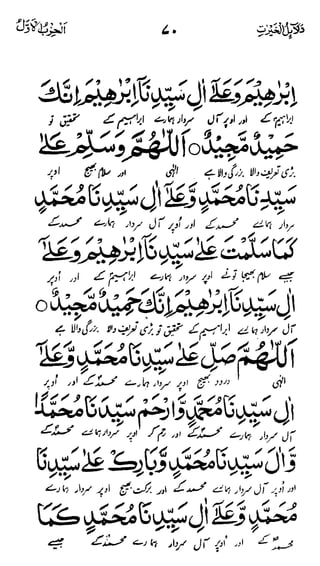 دلائل الخیرت ۷۰ الحزب الاول
اِبْرٰهِيْمَ وَعَلٰٓى اٰلِ سَيِّدِنَآ اِبْرٰهِيْمَ اِنَّكَ
ابراہیم کے اور اوپر آل سردار ہمارے ابراہیم کے تحقیق تو
حَمِيْدٌ مَّجِيْدٌ ○ اَللّٰهُمَّ وَسَلِّمْ عَلٰى
بڑی تعریف والا بزرگی والا ہے الٰہی اور سلام بھیج اوپر
سَيِّدِنَا مُحَمَّدٍ وَّعَلٰٓى اٰلِ سَيِّدِنَا مُحَمَّدٍ
سردار ہمارے محمد کے اور اوپر آل سردار ہمارے محمد کے
كَمَا سَلَّمْتَ عَلٰى سَيِّدِنَآ اِبْرٰهِيْمَ وَعَلٰٓى
جیسے سلام بھیجا تونے اوپر سردار ہمارے ابراہیم کے اور اوپر
اٰلِ سَيِّدِنَآ اِبْرٰهِيْمَ اِنَّكَ حَمِيْدٌ مَّجِيْدٌ ○
آل سردار ہمارے ابراہیم کے تحقیق تو بڑی تعریف والا بزرگی والا ہے
اَللّٰهُمَّ صَلِّ عَلٰى سَيِّدِنَا مُحَمَّدٍ وَّعَلٰٓى
الٰہی درود بھیج اوپر سردار ہمارے محمد کے اور اوپر
اٰلِ سَيِّدِنَا مُحَمَّدٍ وَّارْحَمْ سَيِّدِنَا مُحَمَّدًا
آل سردار ہمارے محمد کے اور رحم کر اوپر سردار ہمارے محمد کے
وَّاٰلَ سَيِّدِنَا مُحَمَّدٍ وَّبَارِكْ عَلٰى سَيِّدِنَا
اور اوپر آل سردار ہمارے محمد کے اور برکت بھیج اوپر سردار ہمارے
مُحَمَّدٍ وَّعَلٰٓى اٰلِ سَيِّدِنَا مُحَمَّدٍ كَمَا
محمد کے اور اوپر آل سردار ہمارے محمد کے جیسے